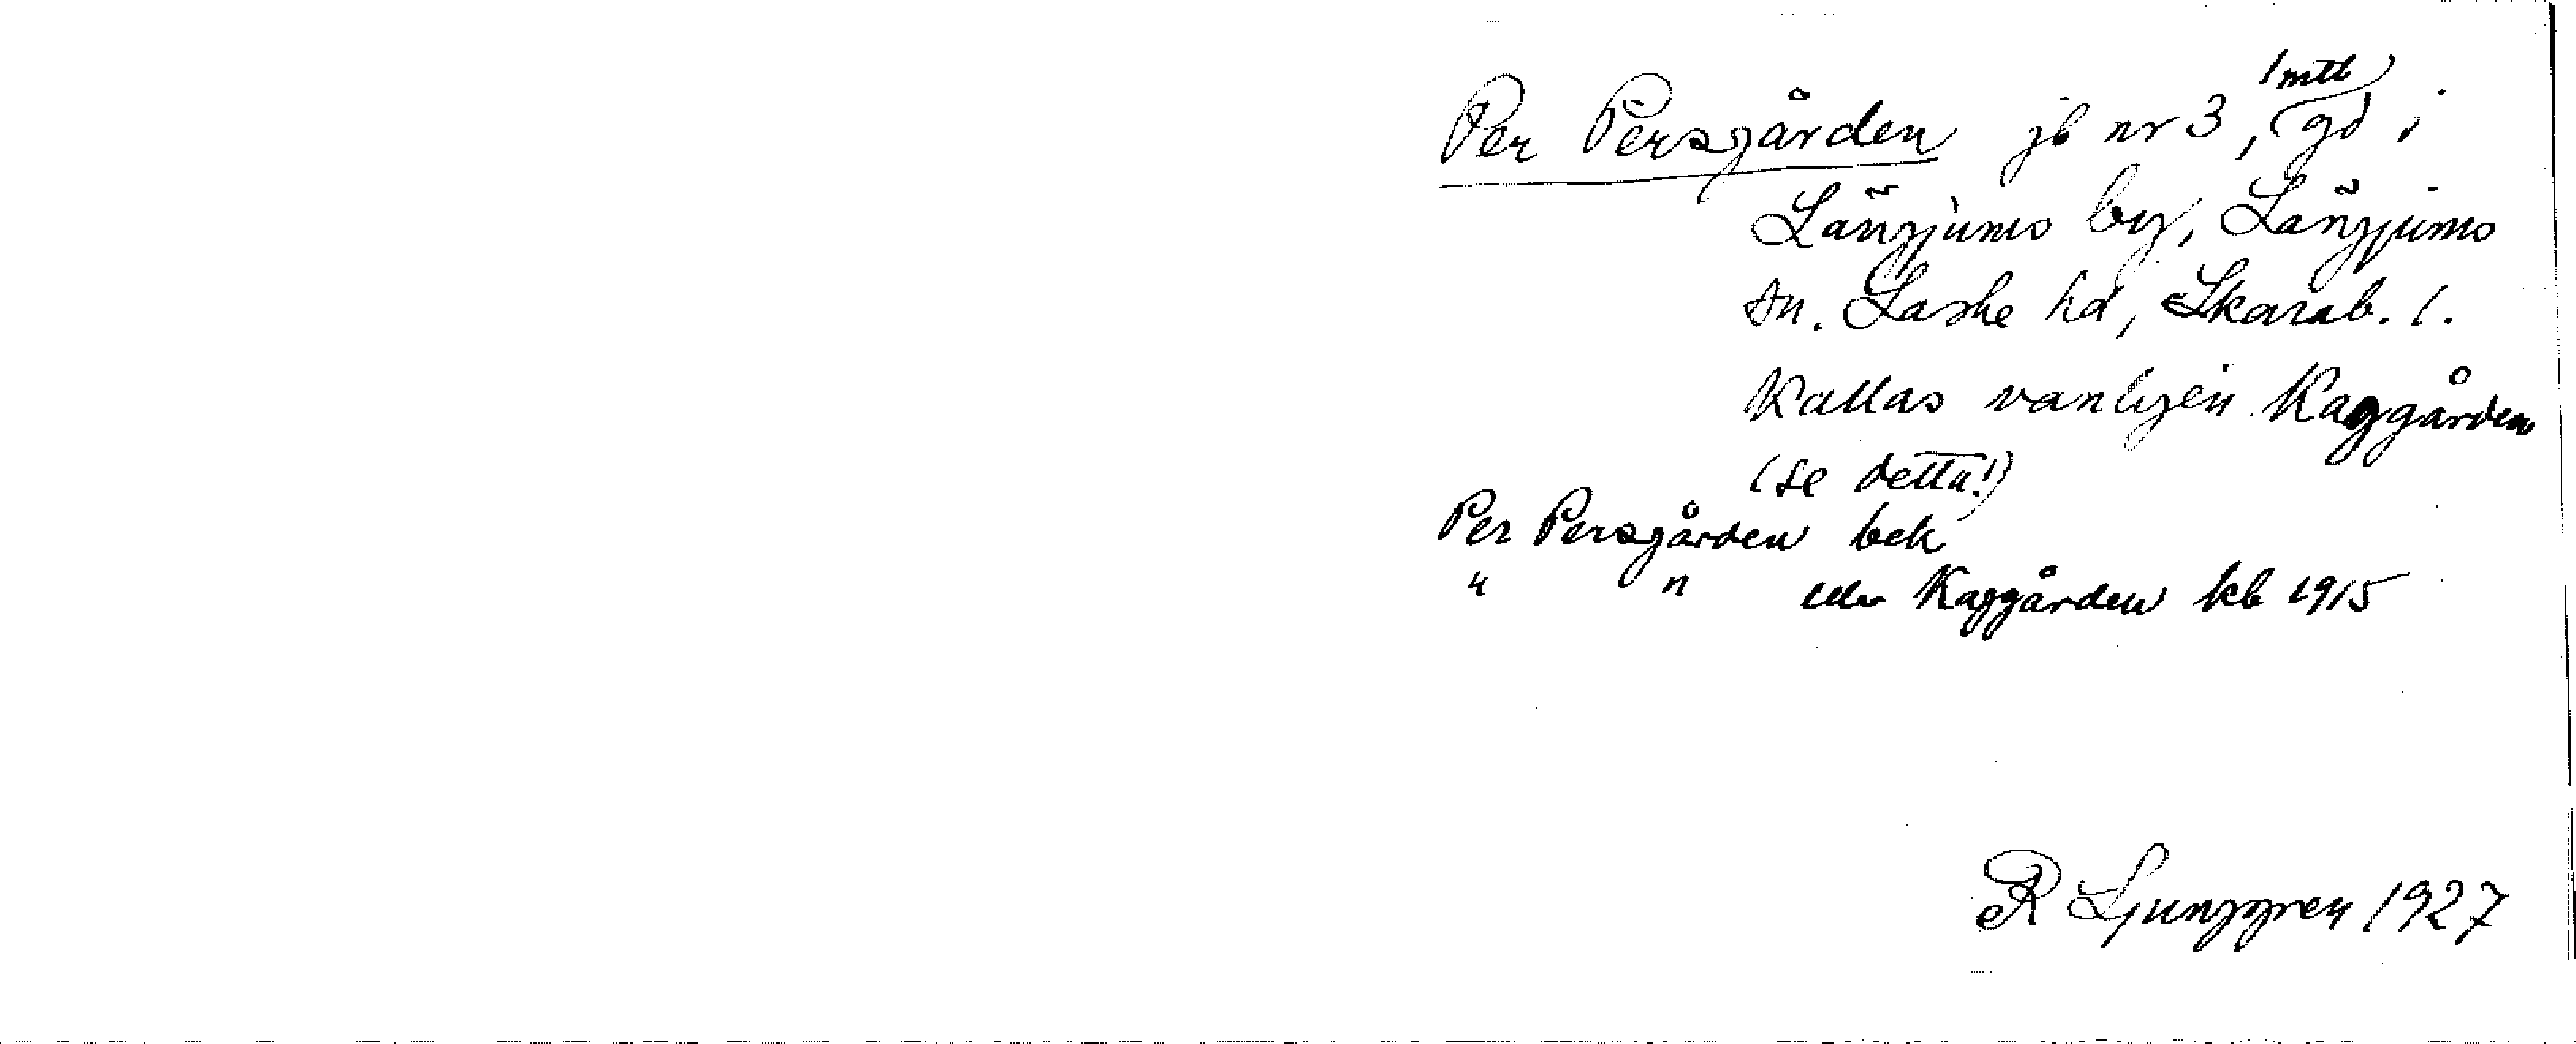 Per Persgården jb nr 3, 1 mtl gd i
Längjums by, Längjums
sn. Laske hd, Skarab. l.
Kallas vanligen Kaggården
(se detta!)
Per Persgården bek
" " eller Kaggården kb 1915
R Ljunggren 1927